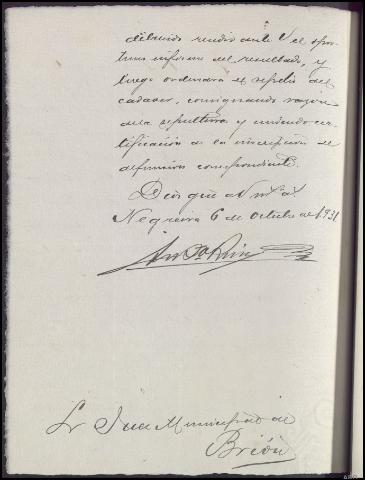 dibuido rendirá ante V. el opor-
tuno informe del resultado, y
luego ordenará el sepelio del
cadaver, consignando razón
de la sepultura y uniendo cer-
tificación de la inscripción de
defunción correspondiente.
Dios gue a V. ms. as.
Negreira 6 de Octubre de 1931
Sr Juez Municipal de
Brión